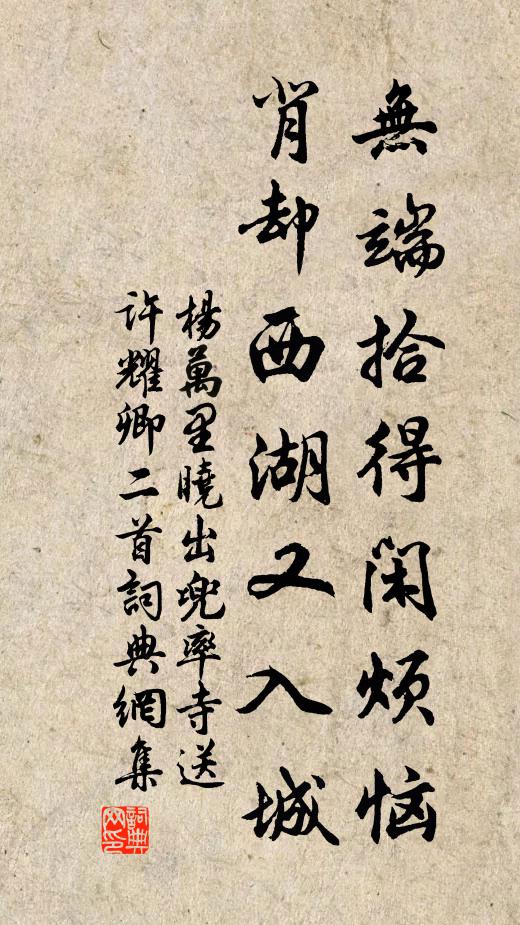 無端拾得閑煩恼
背却西湖又入城
楊萬里曉出兜率寺送
許耀卿二首詞典網集
詞典
网印